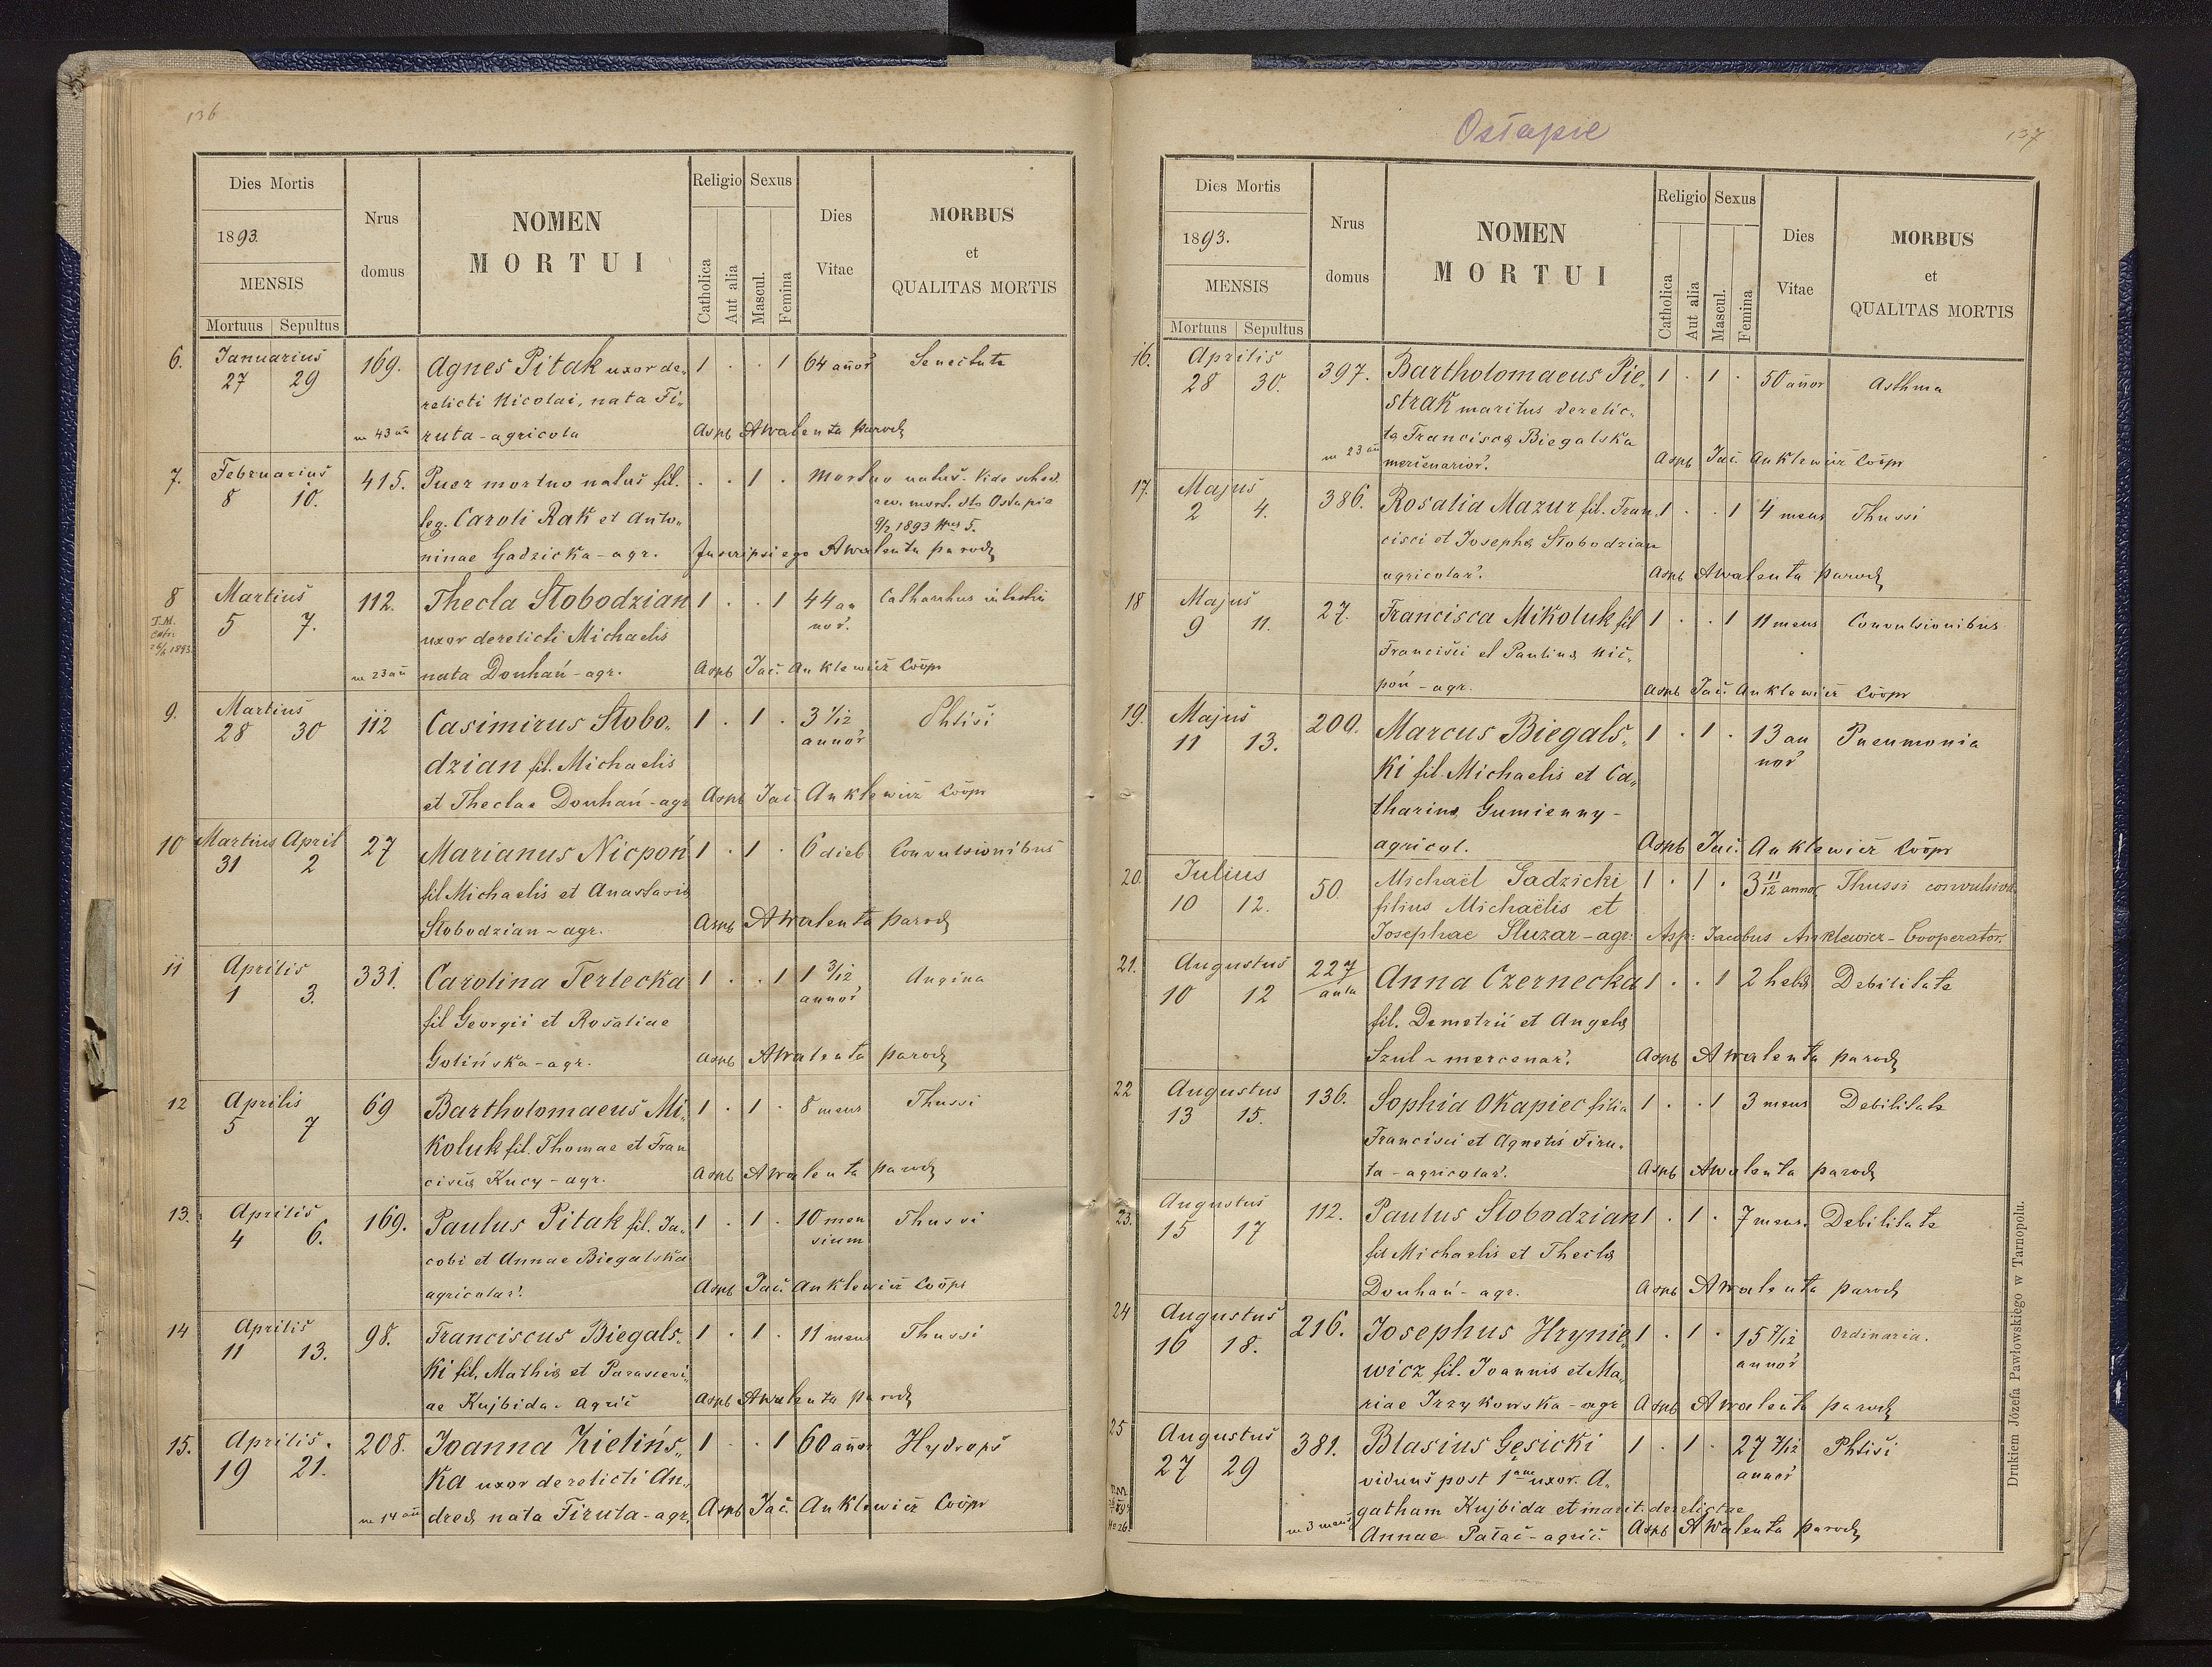 136
Dies Mortis
1893.
MENSIS
Mortuus Sepultus
Nrus
domus
NOMEN
MORTUI
Religio
Catholica
Aut alia
Sexus
Mascul.
Femina
Dies
Vitae
MORBUS
et
QUALITAS MORTIS
6. Januarius 169. Agnes Pitak uxor de„ 1 . . 1 64 annor Senectute
27 29 relicti Nicolai, nata Fi„
m 43 an ruta - agricola Aspb AWalenta paroch
7. Februarius 415. Puer mortuo natus fil. . . 1 . Mortuo natus. Vide sched.
8 10. leg. Caroli Rak et Anto„ rev. mort. dto Ostapie
9/2 1893 Nrus 5.
ninae Gadzicka - agr. Inscripsi ego AWalenta paroch
8 Martius 112. Thecla Słobodzian 1 . . 1 44 an Catharrhus intestin
5 7. uxor derelicti Michaelis nor.
m 23 an nata Douhań - agr. Aspb Jac. Anklewicz Coopr
9. Martius 112 Casimirus Słobo„ 1 . 1 . 3 1/12 Phtisi
28 30 dzian fil. Michaelis annor
et Theclae Douhań - agr Aspb Jac. Anklewicz Coopr
10 Martius April 27 Marianus Nicpoń 1 . 1 . 6 dieb. Convulsionibus
31 2 fil Michaelis et Anastasiae
Słobodzian - agr. Aspb AWalenta paroch
11 Aprilis 331. Carolina Terlecka 1 . . 1 1 3/12 Angina
1 3. fil Georgii et Rosaliae annor
Golińska - agr. Aspb AWalenta paroch
12 Aprilis 69 Bartholomaeus Mi„ 1 . 1 . 8 mens Thussi
5 7 koluk fil. Thomae et Fran
cisca Kucy - agr. Aspb AWalenta paroch
13. Aprilis 169. Paulus Pitak fil. Ja„ 1 . 1 . 10 men Thussi
4 6. cobi et Annae Biegalska sium
agricolar. Aspb Jac. Anklewicz Coopr
14 Aprilis 98. Franciscus Biegals„ 1 . 1 . 11 mens Thussi
11 13. ki fil. Mathiae et Parascevi„
ae Kujbida. Agric Aspb AWalenta paroch
15. Aprilis. 208. Joanna Zielińs„ 1 . . 1 60 annor Hydrops
19 21. ka uxor derelicti An„
m 14 an dreae nata Firuta - agr. Aspb Jac. Anklewicz Coopr
Ostapie
137
Dies Mortis
1893.
MENSIS
Mortuus Sepultus
Nrus
domus
NOMEN
MORTUI
Religio
Catholica
Aut alia
Sexus
Mascul.
Femina
Dies
Vitae
MORBUS
et
QUALITAS MORTIS
16. Aprilis 397. Bartholomaeus Pie„ 1 . 1 . 50 annor Asthma
28 30. strak maritus derelic„
m 23 an tae Franciscae Biegalska
mercenarior. Aspb Jac. Anklewicz Coopr
17. Majus 386. Rosalia Mazur fil. Fran„ 1 . . 1 4 mens Thussi
2 4. cisci et Josephae Słobodzian
agricolar. Aspb AWalenta paroch
18 Majus 27. Francisca Mikoluk fil 1 . . 1 11 mens Convulsionibus
9 11. Francisci et Paulinae Nic„
poń - agr. Aspb Jac. Anklewicz Coopr
19. Majus 200. Marcus Biegals„ 1 . 1 . 13 an Pneumonia
11 13. ki fil. Michaelis et Ca„ nor
tharinae Gumienny -
agricol. Aspb Jac. Anklewicz Coopr
20. Julius 50. Michaël Gadzicki 1 . 1 . 3 11/12 annor Thussi convulsion.
10 12. filius Michaëlis et
Josephae Sluzar - agr. Asp: Jacobus Anklewicz - Cooperator.
21. Augustus 227/ Anna Czernecka 1 . . 1 2 hebd Debilitate
10 12 aula fil. Demetrii et Angelae
Szul - mercenar. Aspb AWalenta paroch
22 Augustus 136. Sophia Okapiec filia 1 . . 1 3 mens Debilitate
13 15. Francisci et Agnetis Firu„
ta - agricolar. Aspb AWalenta paroch
23. Augustus 112. Paulus Słobodzian 1 . 1 . 7 mens. Debilitate
15 17 fil Michaelis et Theclae
Douhań - agr. Aspb AWalenta paroch
24 Augustus 216. Josephus Hrynie„ 1 . 1 . 15 7/12 Ordinaria.
16 18. wicz fil. Joannis et Ma„ annor
riae Irzykowska - agr Aspb AWalenta paroch
25 Augustus 381. Blasius Gęsicki 1 . 1 . 27 7/12 Phtisi
27 29 viduus post 1am uxor. A„ annor
gatham Kujbida et marit. derelictae
m 3 mens Annae Pałac - agric. Aspb AWalenta paroch
Drukiem Józefa Pawłowskiego w Tarnopolu.